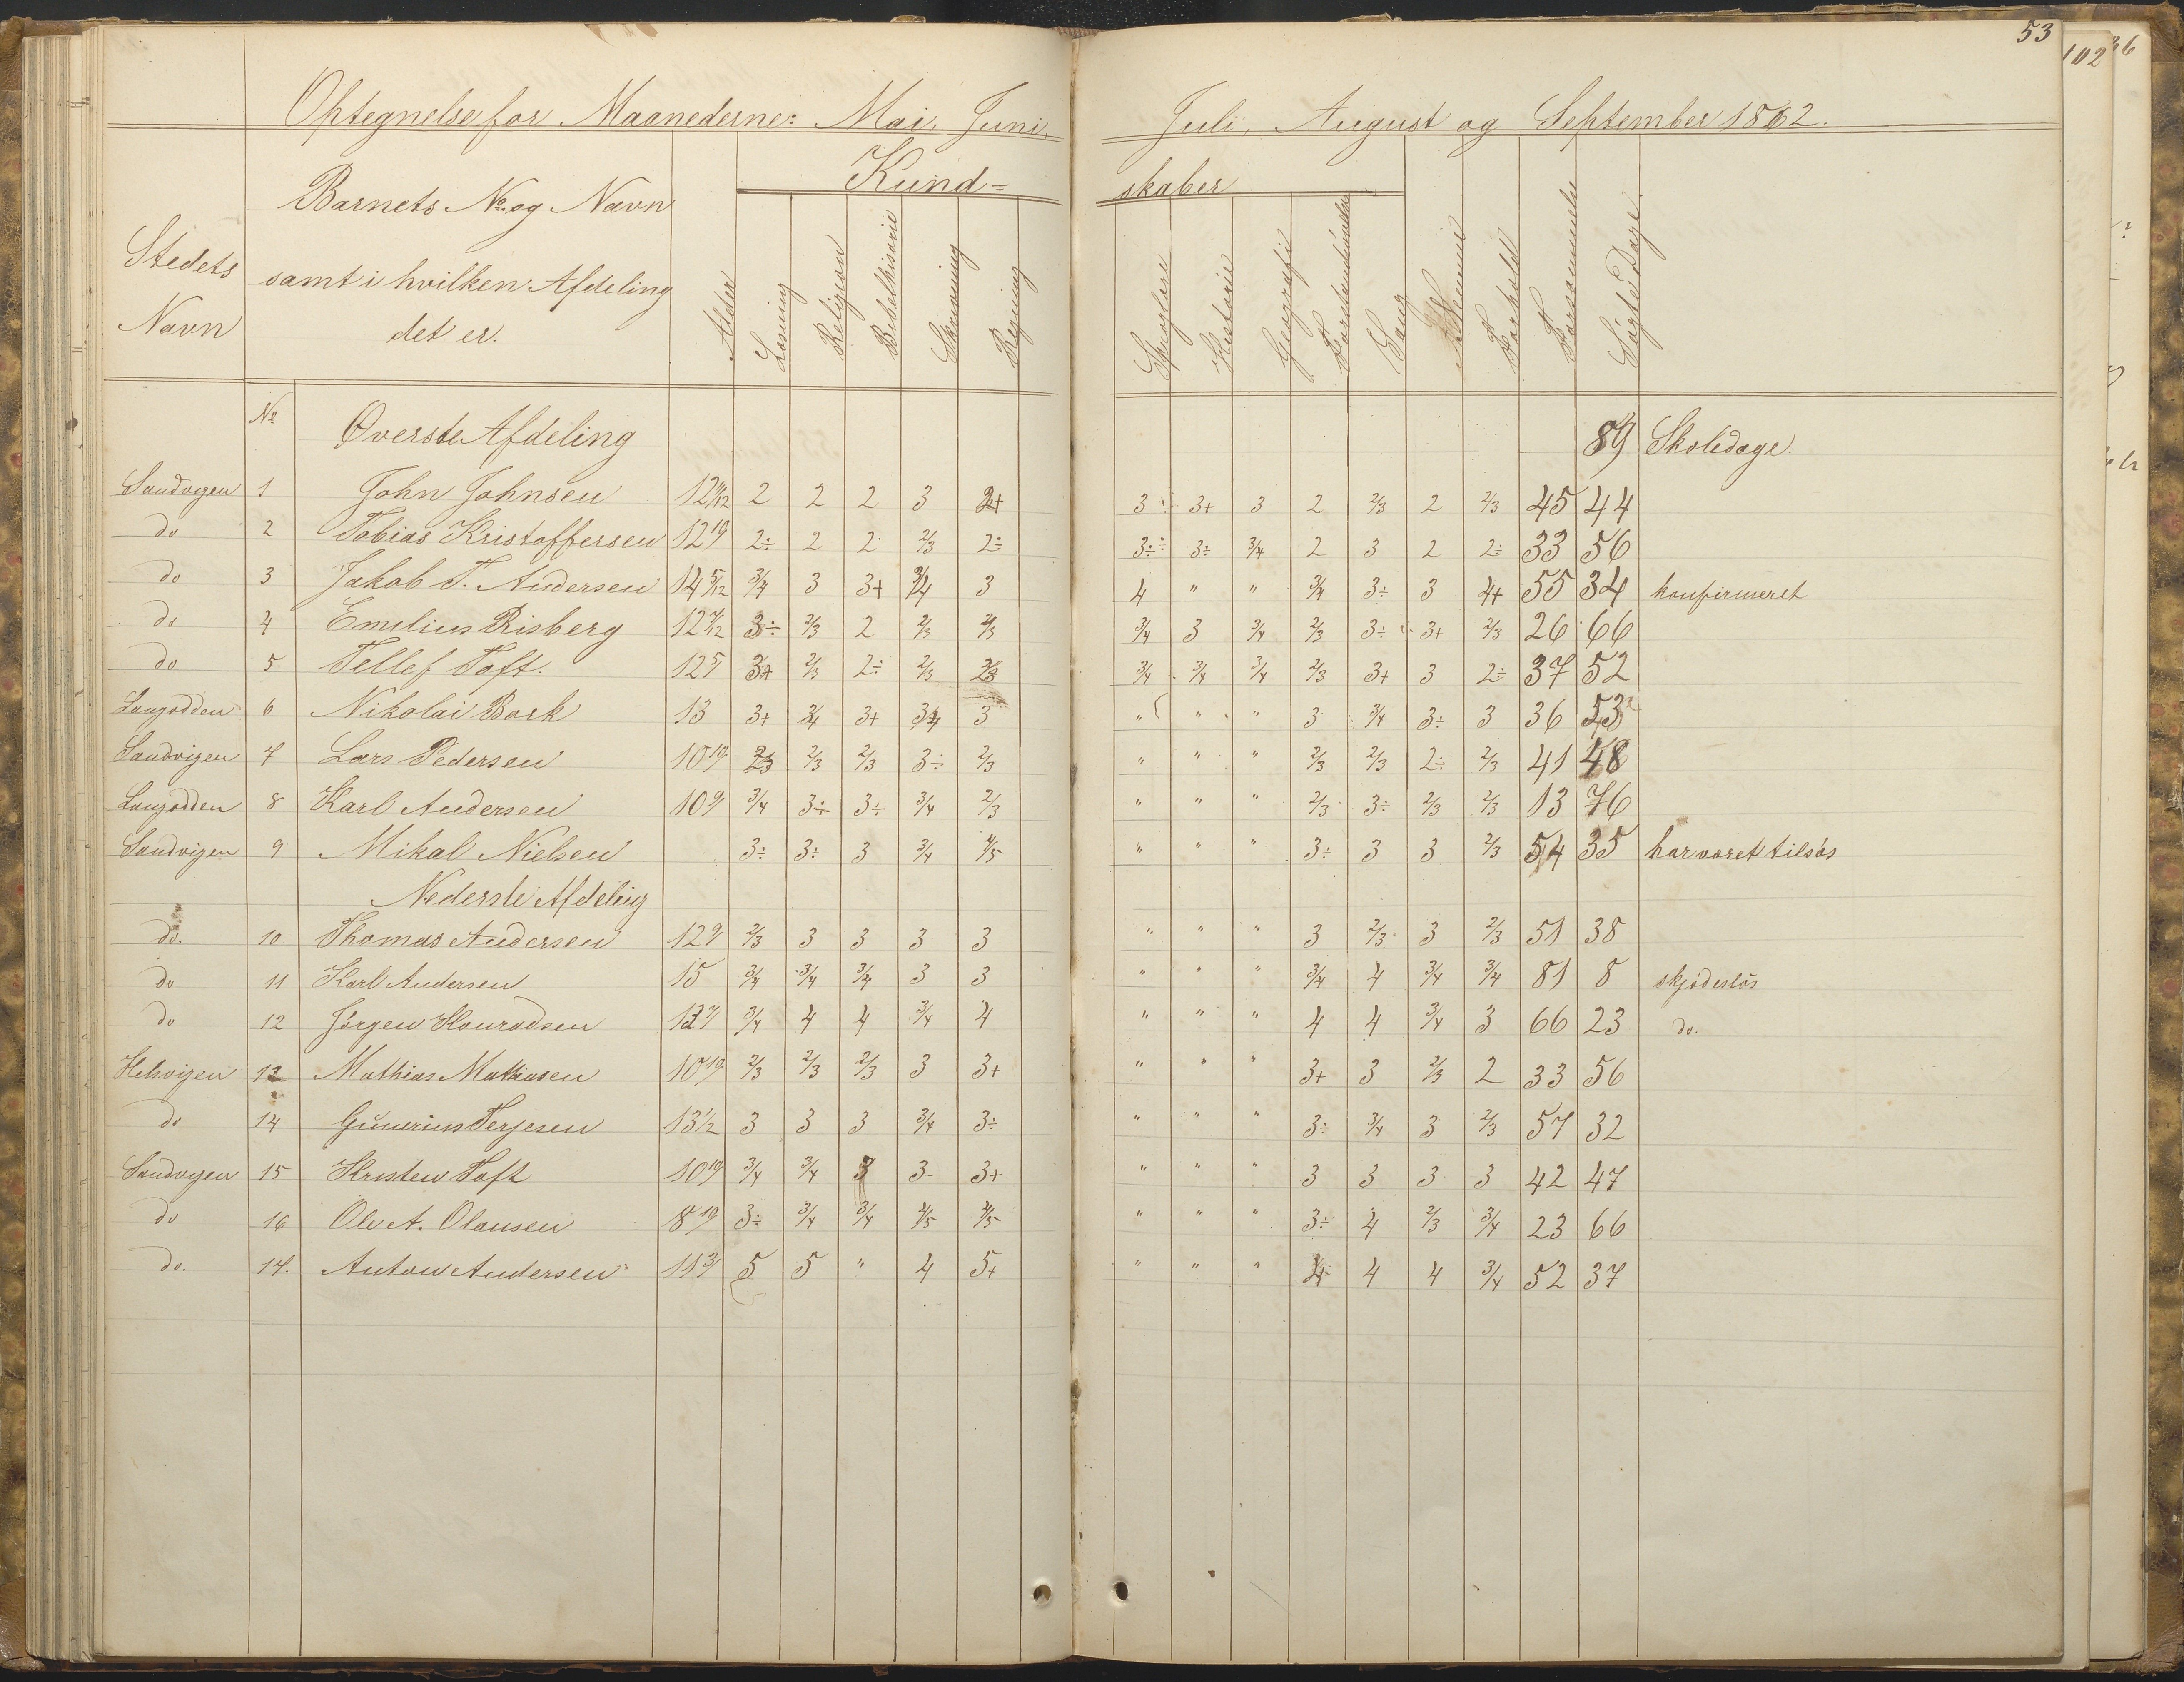 53
102
36
Optegnelse for Maanederne: Mai, Juni, Juli, August og September 1862.
Stedets Navn
Barnets No. og Navn
samt i hvilken Afdeling
det er.
Alder
Kund= skaber
Læsning Religion Bibelhistorie Skrivning Regning Sproglære Historie Geografi Sang Nemme Forhold Forsømmelse Søgte Dage.
No. Øverste Afdeling 89 Skoledage.
Sandvigen 1 John Johnsen 12 2 2 2 3 2+ 3÷ 3+ 3 2 2/3 2 2/3 45 44
do 2 Tobias Kristoffersen 12 2÷ 2 2 2/3 2÷ 3÷ 3÷ 3/4 2 3 2 2÷ 33 56
do 3 Jakob T. Andersen 14 5/12 3/4 3 3+ 3/4 3 4 " " 3/4 3÷ 3 4+ 55 34 konfirmeret
do 4 Emilius Risberg 12 7/12 3÷ 2/3 2 2/3 2/3 3/4 3 3/4 2/3 3÷ 3+ 2/3 26 66
do 5 Tellef Toft. 12 5/ 3+ 2/3 2÷ 2/3 2/3 3/4 3/4 3/4 2/3 3+ 3 2÷ 37 52
Langodden 6 Nikolai Bork 13 3+ 3/4 3+ 3/4 3 " " " 3 3/4 3÷ 3 36 53
Sandvigen 7 Lars Pedersen 10 10/ 2/3 2/3 2/3 3÷ 2/3 " " " 2/3 2/3 2÷ 2/3 41 48
Langodden 8 Karl Andersen 10 9/ 3/4 3÷ 3÷ 3/4 2/3 " " " 2/3 3÷ 2/3 2/3 13 76
Sandvigen 9 Mikal Nielsen 3÷ 3÷ 3 3/4 4/5 " " " 3÷ 3 3 2/3 54 35 har været tilsøs
Nederste Afdeling
do. 10 Thomas Andersen 12 9/ 2/3 3 3 3 3 " " " 3 2/3 3 2/3 51 38
do 11 Karl Andersen 15 3/4 3/4 3/4 3 3 " " " 3/4 4 3/4 3/4 81 8 skjødesløs
do 12 Jørgen Konradsen 13 7/ 3/4 4 4 3/4 4 " " " 4 4 3/4 3 66 23 do.
Helsvigen 13 Mathias Mathiasen 10 10/ 2/3 2/3 2/3 3 3+ " " " 3+ 3 2/3 2 33 56
do 14 Gunerius Terjesen 13 1/2 3 3 3 3/4 3÷ " " " 3÷ 3/4 3 2/3 57 32
Sandvigen 15 Kristen Toft 10 10/ 3/4 3/4 3 3- 3+ " " " 3 3 3 3 42 47
do 16 Ole A. Olausen 8 10/ 3÷ 3/4 3/4 4/5 4/5 " " " 3÷ 4 2/3 3/4 23 66
do. 17. Anton Andersen 11 3/ 5 5 " 4 5+ " " " 4 4 4 3/4 52 37